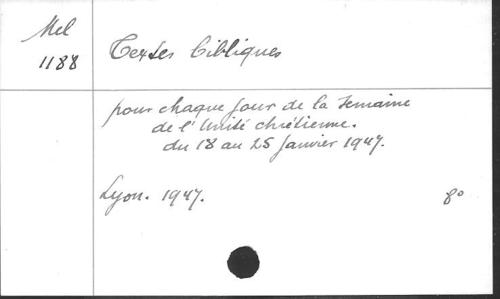 Mel
1188
Textes bibliques
pour chaque jour de la Semaine
de l'Unité chrétienne.
du 18 au 25 Janvier 1947.
Lyon. 1947.
8°